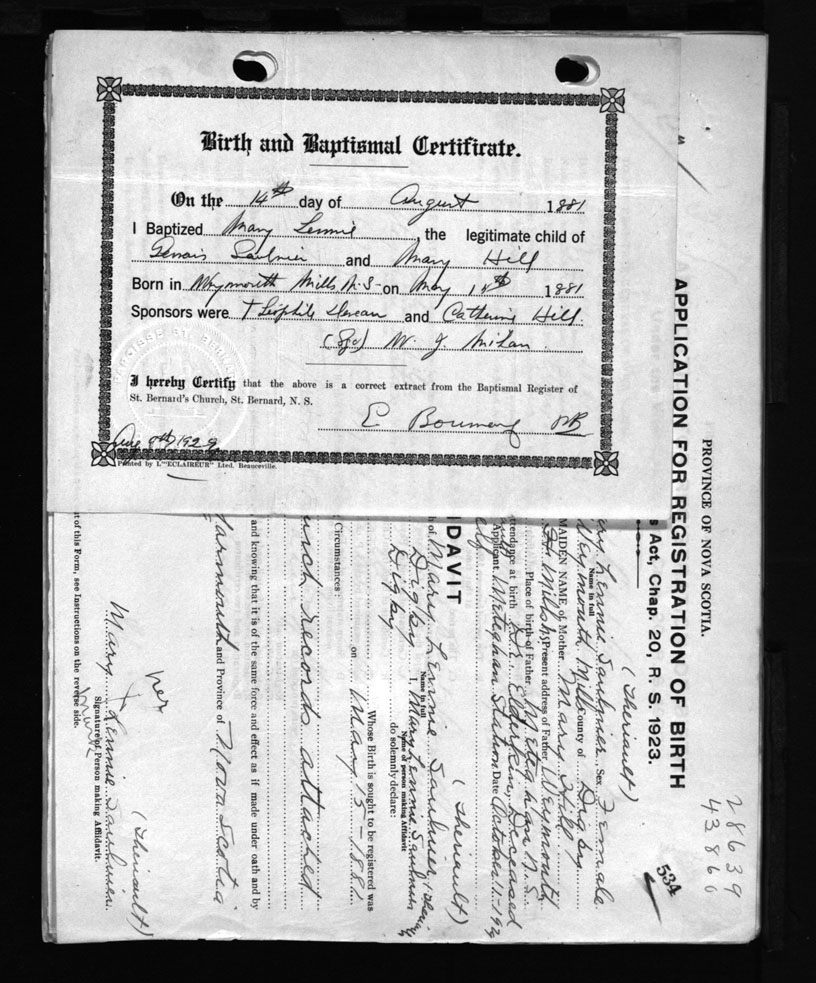 Birth and Baptismal Certificate.
On the 14th day of August 1881
I Baptized Mary Lennie, the legitimate child of
Gervais Saulnier and Mary Hill
Born in Weymouth Mills N.S. on May 15th 1881
Sponsors were Theophile and Catherine Hill
(Sgd) W. J.
I hereby Certify that the above is a correct extract from the Baptismal Register of
St. Bernard's Church, St. Bernard, N. S.
E.
Aug 1929
Printed by L'"ECLAIREUR" Lted. Beauceville.
28639
43860
534
PROVINCE OF NOVA SCOTIA.
APPLICATION FOR REGISTRATION OF BIRTH
s Act, Chap. 20, R. S. 1923.
(Theriault)
ary Lennie Saulnier Sex Female
Name in full
Weymouth Mills County of Digby
MAIDEN NAME of Mother Mary Hill
th Mills NS Present address of Father Weymouth
Place of birth of Father Meteghan N.S.
ttendance at birth Dr. Elderkin, Deceased
Applicant Meteghan Station Date October 11-192
elf
DAVIT
(Theriault)
h of Mary Lennie Saulnier
Name in full
Digby I, Mary Lennie Saulnier
Name of person making Affidavit
Digby do solemnly declare:
Whose Birth is sought to be registered was
on May 15-1881
Circumstances:
urch records attached
and knowing that it is of the same force and effect as if made under oath and by
Yarmouth and Province of Nova Scotia
her
(Theriault)
Mary X Lennie Saulnier
Signature of Person making Affidavit.
t of this Form, see Instructions on the reverse side.